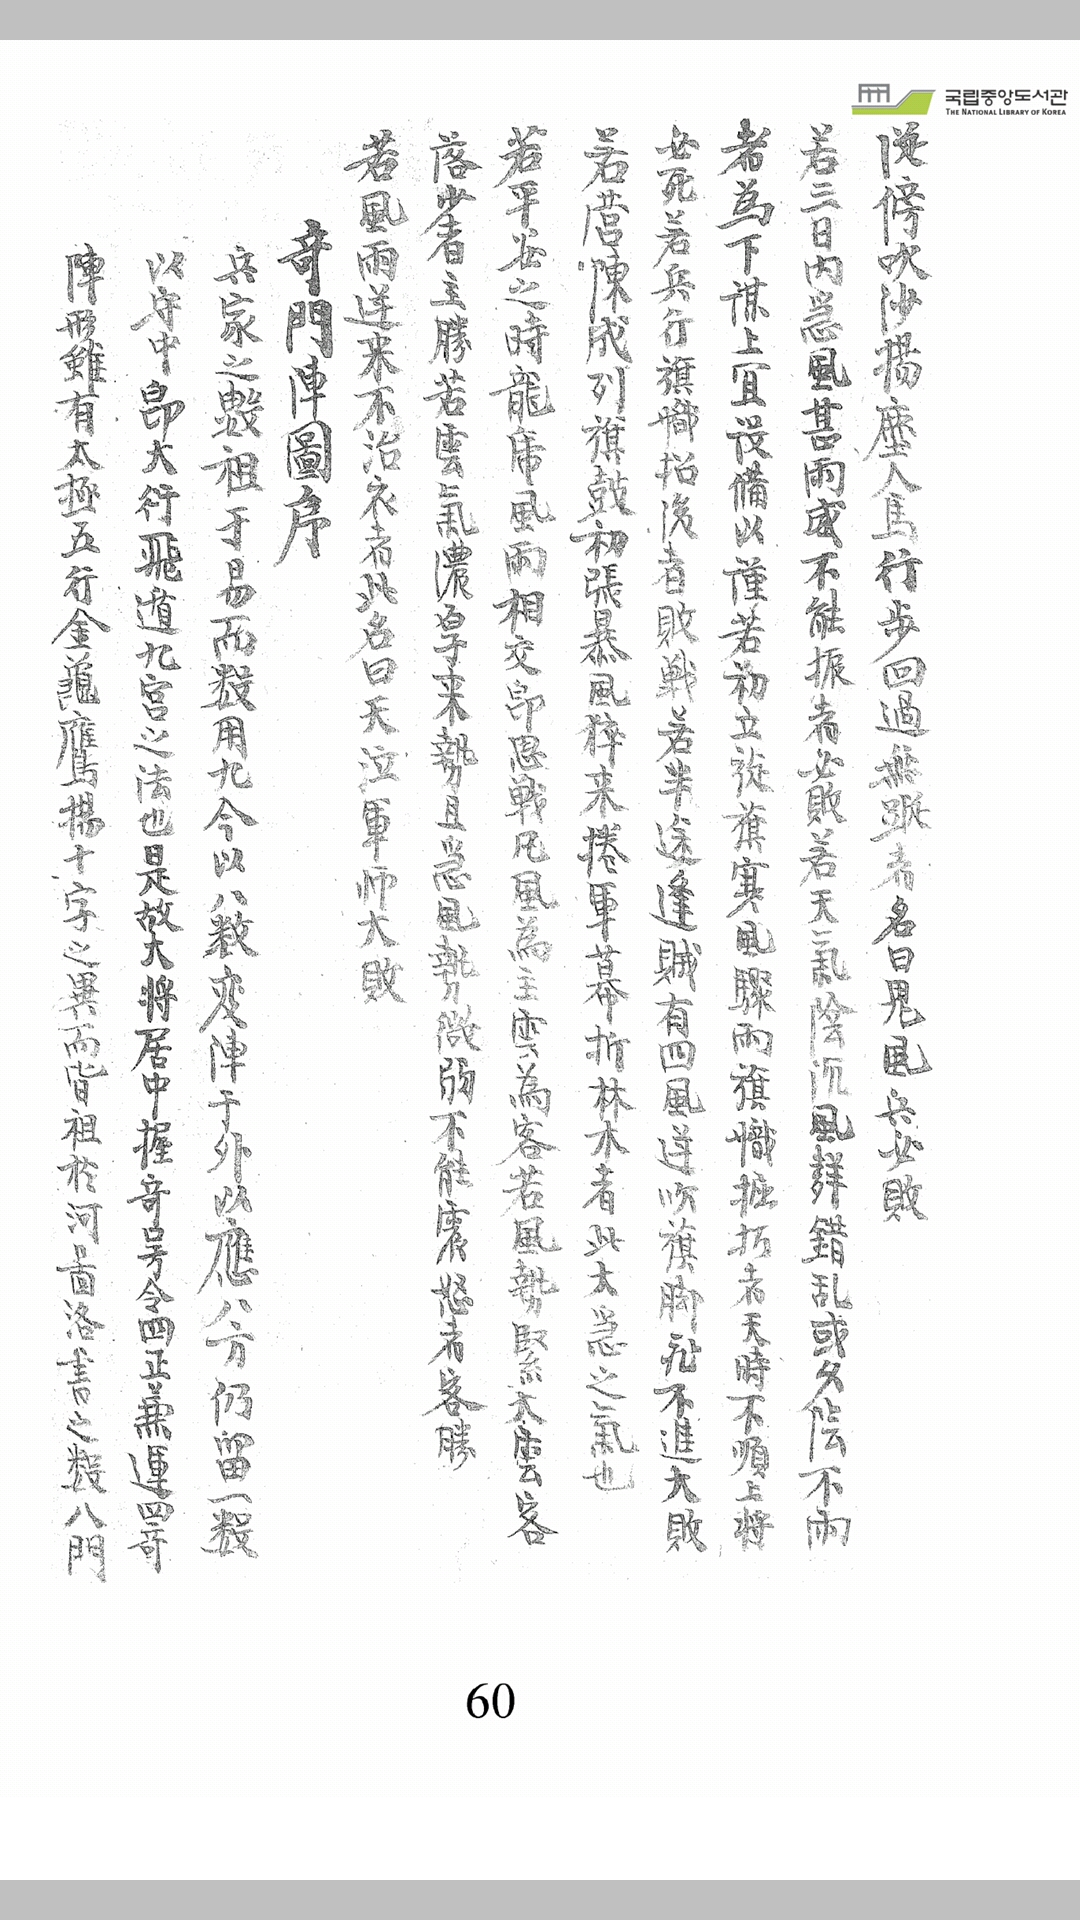 국립중앙도서관
THE NATIONAL LIBRARY OF KOREA
從傍吹沙揚塵人馬行步回過無蹤者名曰鬼風兵必敗
若三日内忽風甚雨或不能振者必敗若天氣陰沉風勢錯乱或久陰不雨
者為下謀上宜設備以謹若初立旋旗寒風驟雨旗幟摧折者天時不順上將
必死若兵行旗幟招後者敗戰若半途逢賊有四風逆吹旗脚礼不進大敗
若營陳成列旗鼓初張暴風猝来捲軍幕折林木者此大急之氣也
若平安之時龍席風雨相交即思戰凡風為主雲為客若風勢緊大雲客
落少者主勝若雲氣濃厚来勢且急風勢微弱不能震怒者客勝
若風雨逆来不沾衣者此名曰天泣軍师大敗
奇門陣圖序
兵家之數祖于易而數用九今以八數变陣于外以應八方仍留一數
以守中即大衍飛道九宮之法也是故大將居中握奇号令四正兼運四奇
陣形雖有太極五行金龜鷹揚十字之異而皆祖於河啚洛書之數八門
60